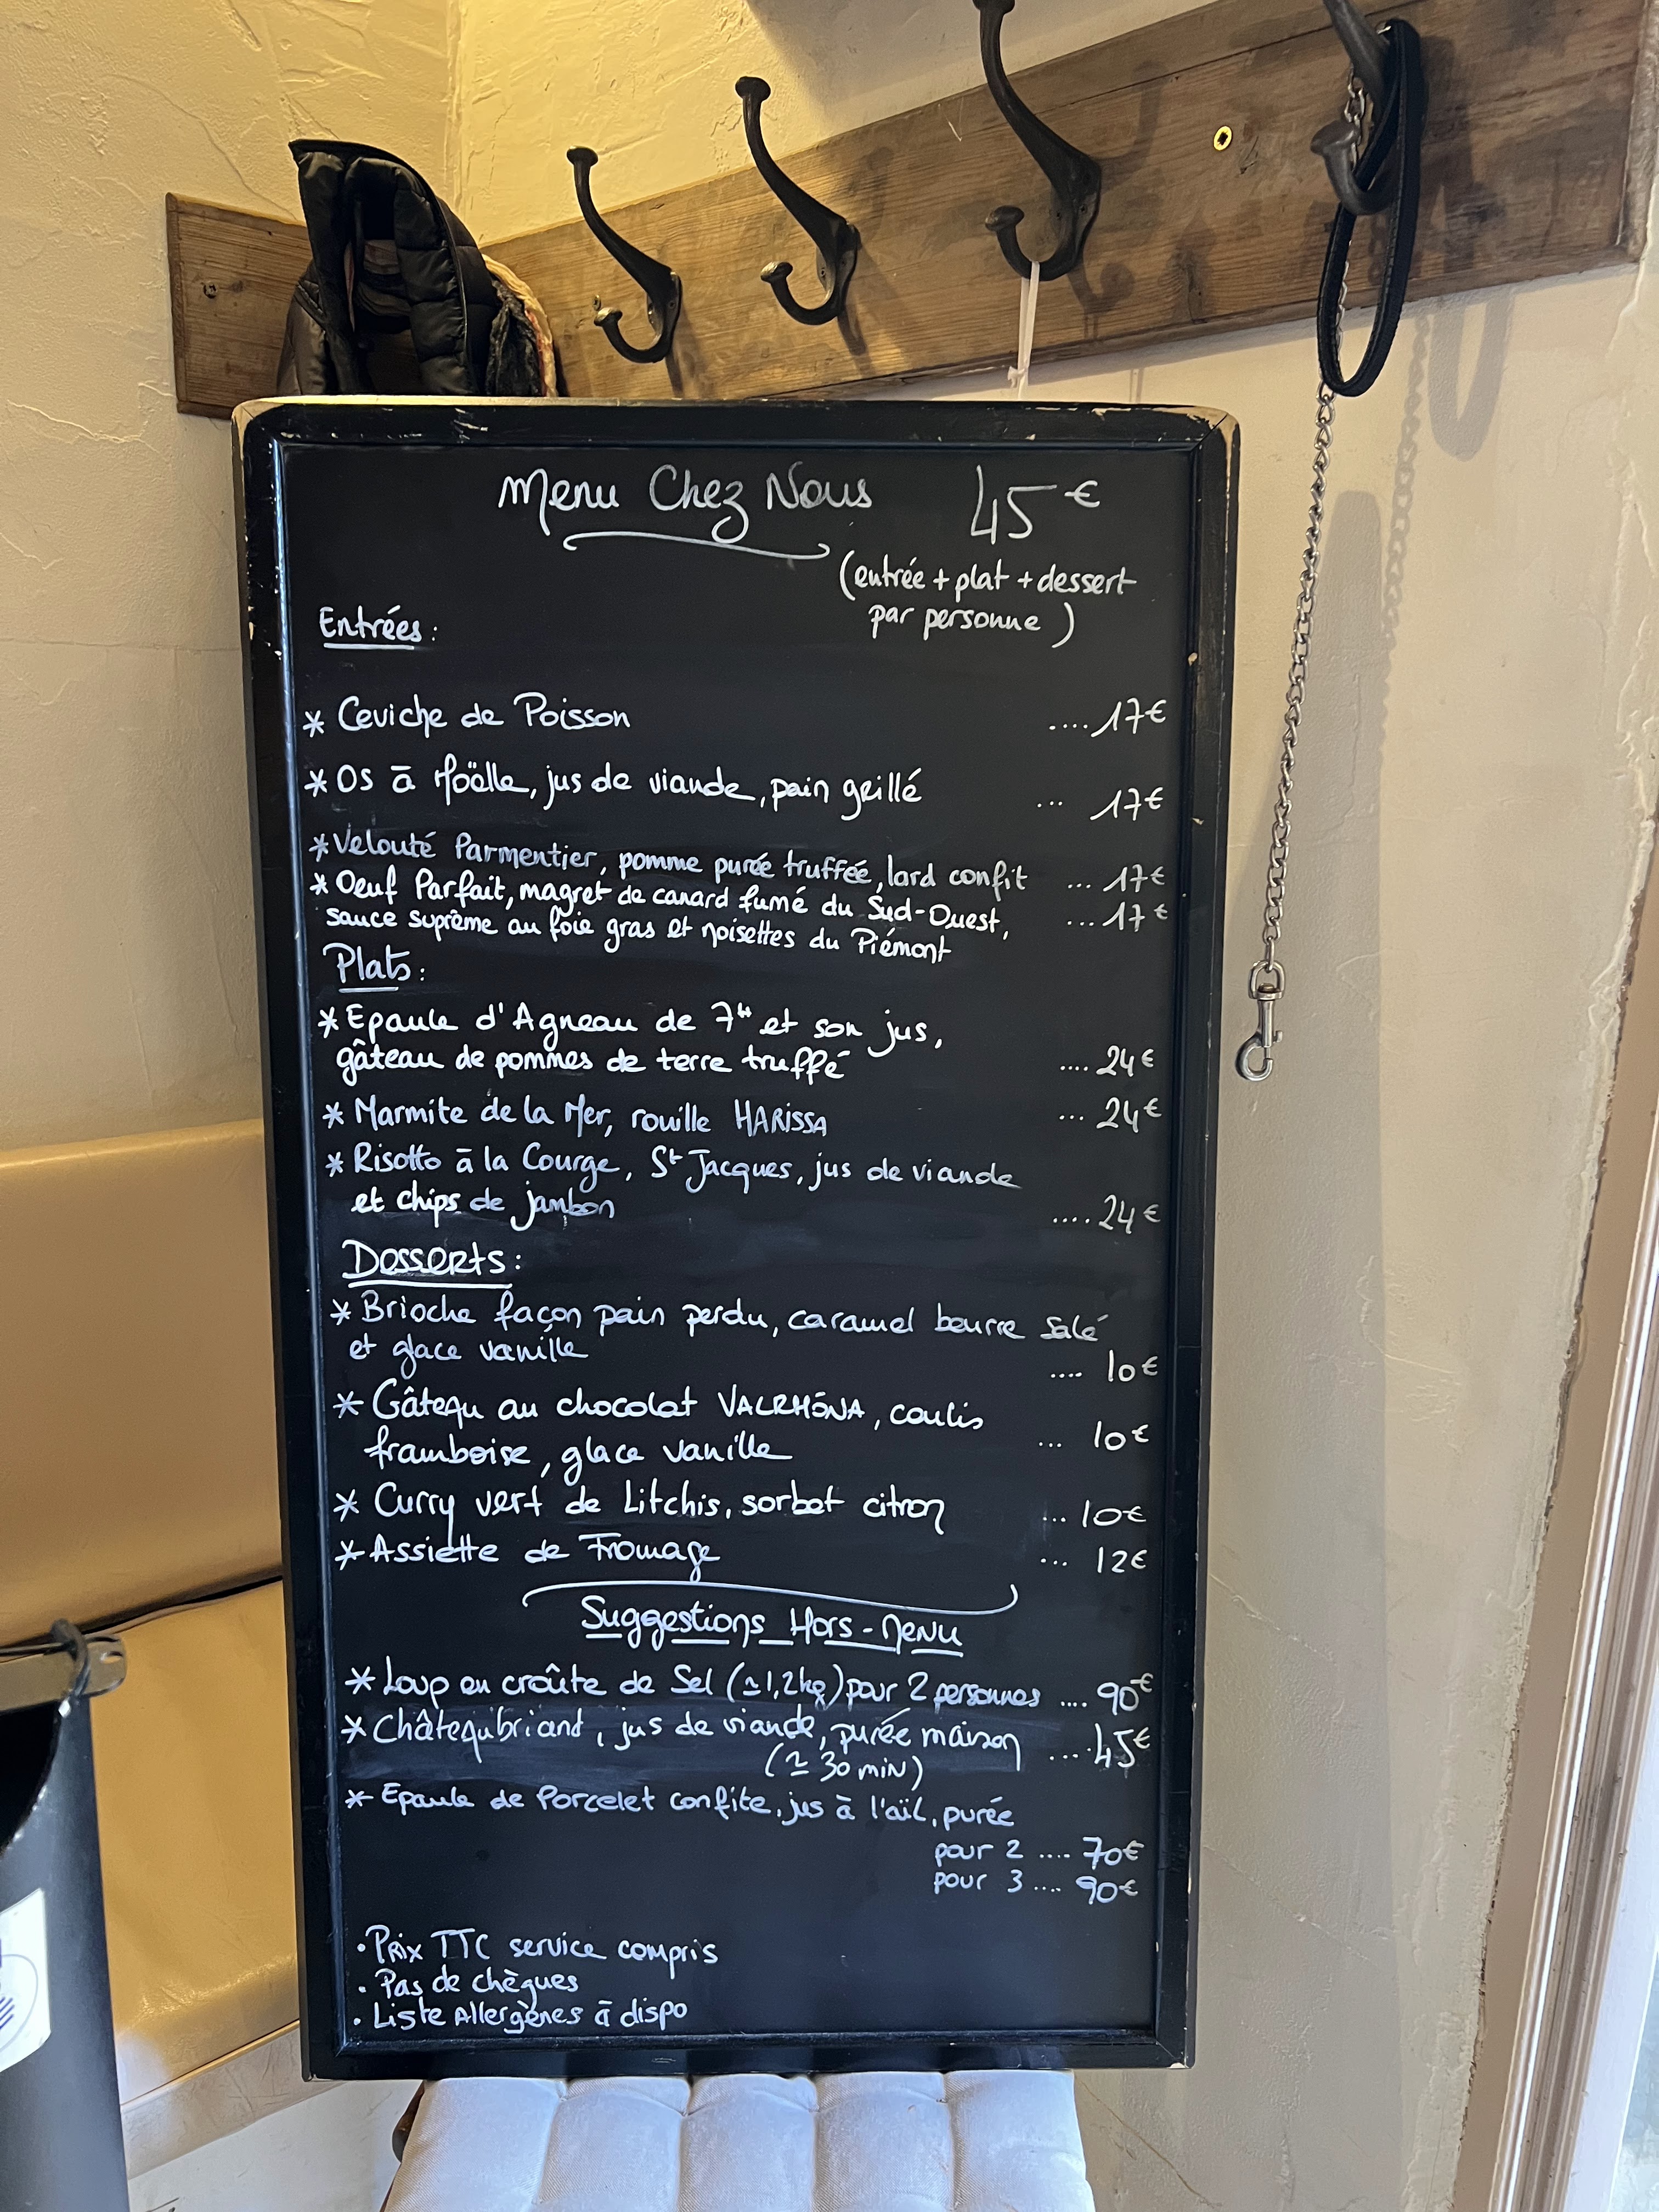 Menu Chez Nous 45€
(entrée + plat + dessert
par personne)
Entrées :
* Ceviche de Poisson .... 17€
* Os à Moëlle, jus de viande, pain grillé ... 17€
* Velouté Parmentier, pomme purée truffée, lard confit ... 17€
* Oeuf Parfait, magret de canard fumé du Sud-Ouest, ... 17€
sauce suprême au foie gras et noisettes du Piémont
Plats :
* Epaule d'Agneau de 7H et son jus,
gâteau de pommes de terre truffé .... 24€
* Marmite de la Mer, rouille HARISSA ... 24€
* Risotto à la Courge, St Jacques, jus de viande
et chips de jambon .... 24€
Desserts :
* Brioche façon pain perdu, caramel beurre salé
et glace vanille .... 10€
* Gâteau au chocolat VALRHÔNA, coulis
framboise, glace vanille ... 10€
* Curry vert de Litchis, sorbet citron ... 10€
* Assiette de Fromage ... 12€
Suggestions Hors-Menu
* Loup en croûte de Sel (≃1,2kg) pour 2 personnes .... 90€
* Châteaubriand, jus de viande, purée maison .... 45€
(≃ 30 min)
* Epaule de Porcelet confite, jus à l'aïl, purée
pour 2 .... 70€
pour 3 .... 90€
• Prix TTC service compris
• Pas de chèques
• Liste Allergènes à dispo